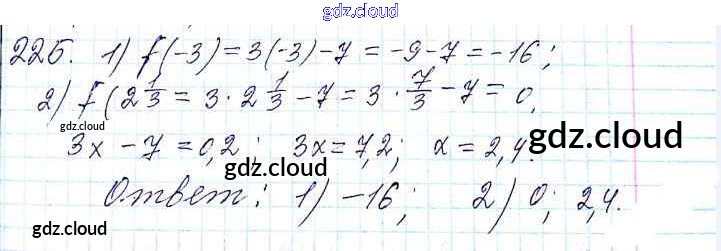 gdz.cloud
225. 1) f(-3) = 3(-3) - 7 = -9 - 7 = -16;
2) f(2 1/3 = 3 · 2 1/3 - 7 = 3 · 7/3 - 7 = 0,
gdz.cloud
3x - 7 = 0,2; 3x = 7,2; x = 2,4. gdz.cloud
gdz.cloud
Ответ: 1) -16; 2) 0; 2,4.
gdz.cloud gdz.cloud